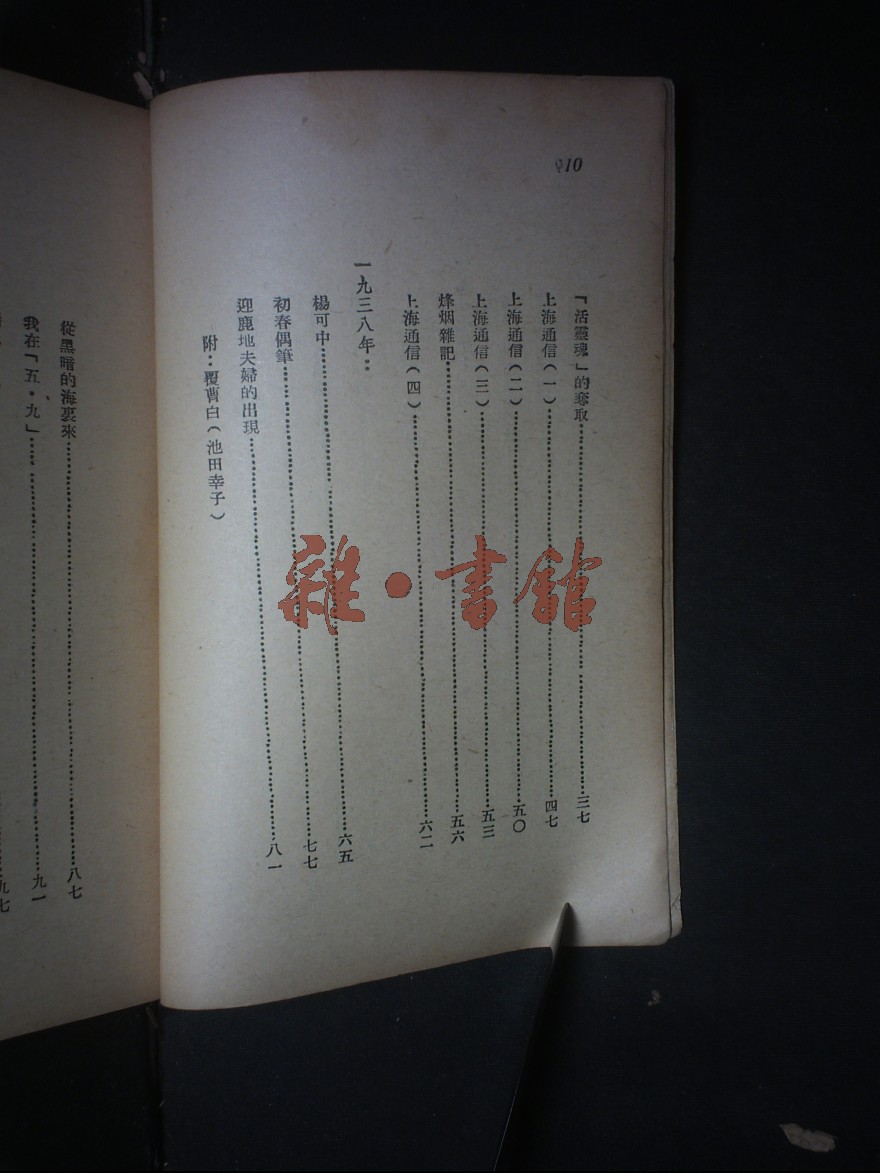 10
「活靈魂」的奪取……三七
上海通信（一）……四七
上海通信（二）……五〇
上海通信（三）……五三
烽烟雜記……五六
上海通信（四）……六二
一九三八年：
楊可中……六五
初春偶筆……七七
迎鹿地夫婦的出現……八一
附：覆曹白（池田幸子）
從黑暗的海裏來……八七
我在「五·九」……九一
九七
雜·書館